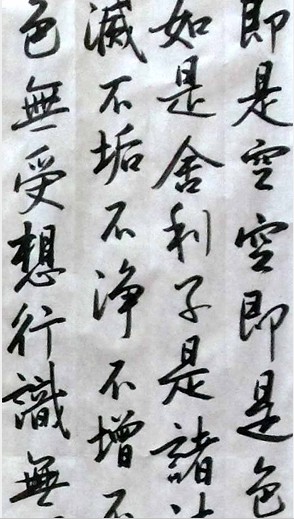 即是空空即是色
如是舍利子是諸法
滅不垢不淨不增不
色無受想行識無